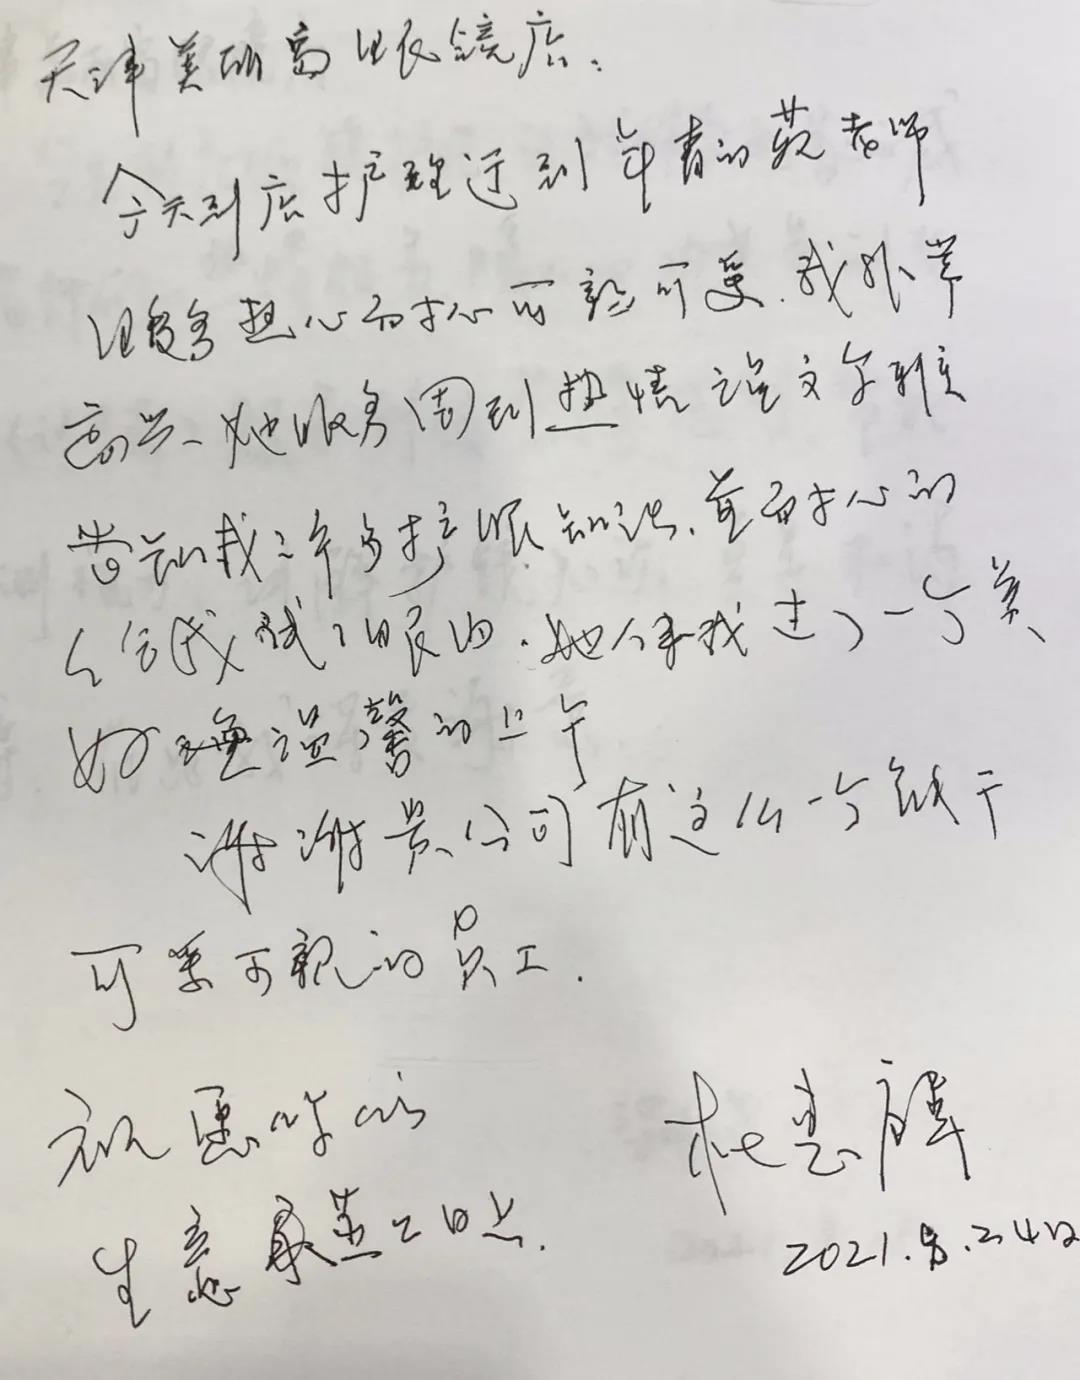 天津美丽岛眼镜店:
今天到店护理遇到年青的范老师
服务热心而耐心可敬可爱.我非常
高兴、她服务周到热情语文尔雅
告知我许多护眼知识.并耐心的
给我试了眼内.她伴我过了一个美
好温馨的上午
谢谢贵公司有这么一个能干
可爱可亲的员工.
祝愿你们
生意蒸蒸日上.
2021.8.24日